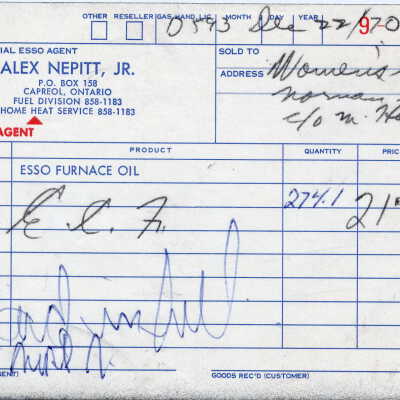 OTHER RESELLER GAS HAND. LIC. MONTH DAY YEAR
0593 Dec 22/1970
IAL ESSO AGENT
ALEX NEPITT, JR.
P.O. BOX 158
CAPREOL, ONTARIO
FUEL DIVISION 858-1183
HOME HEAT SERVICE 858-1183
AGENT
SOLD TO
ADDRESS
Women's
Norman
c/o M. Ha
PRODUCT QUANTITY PRIC
ESSO FURNACE OIL
274.1 21
E. C. F.
ENT)
GOODS REC'D (CUSTOMER)